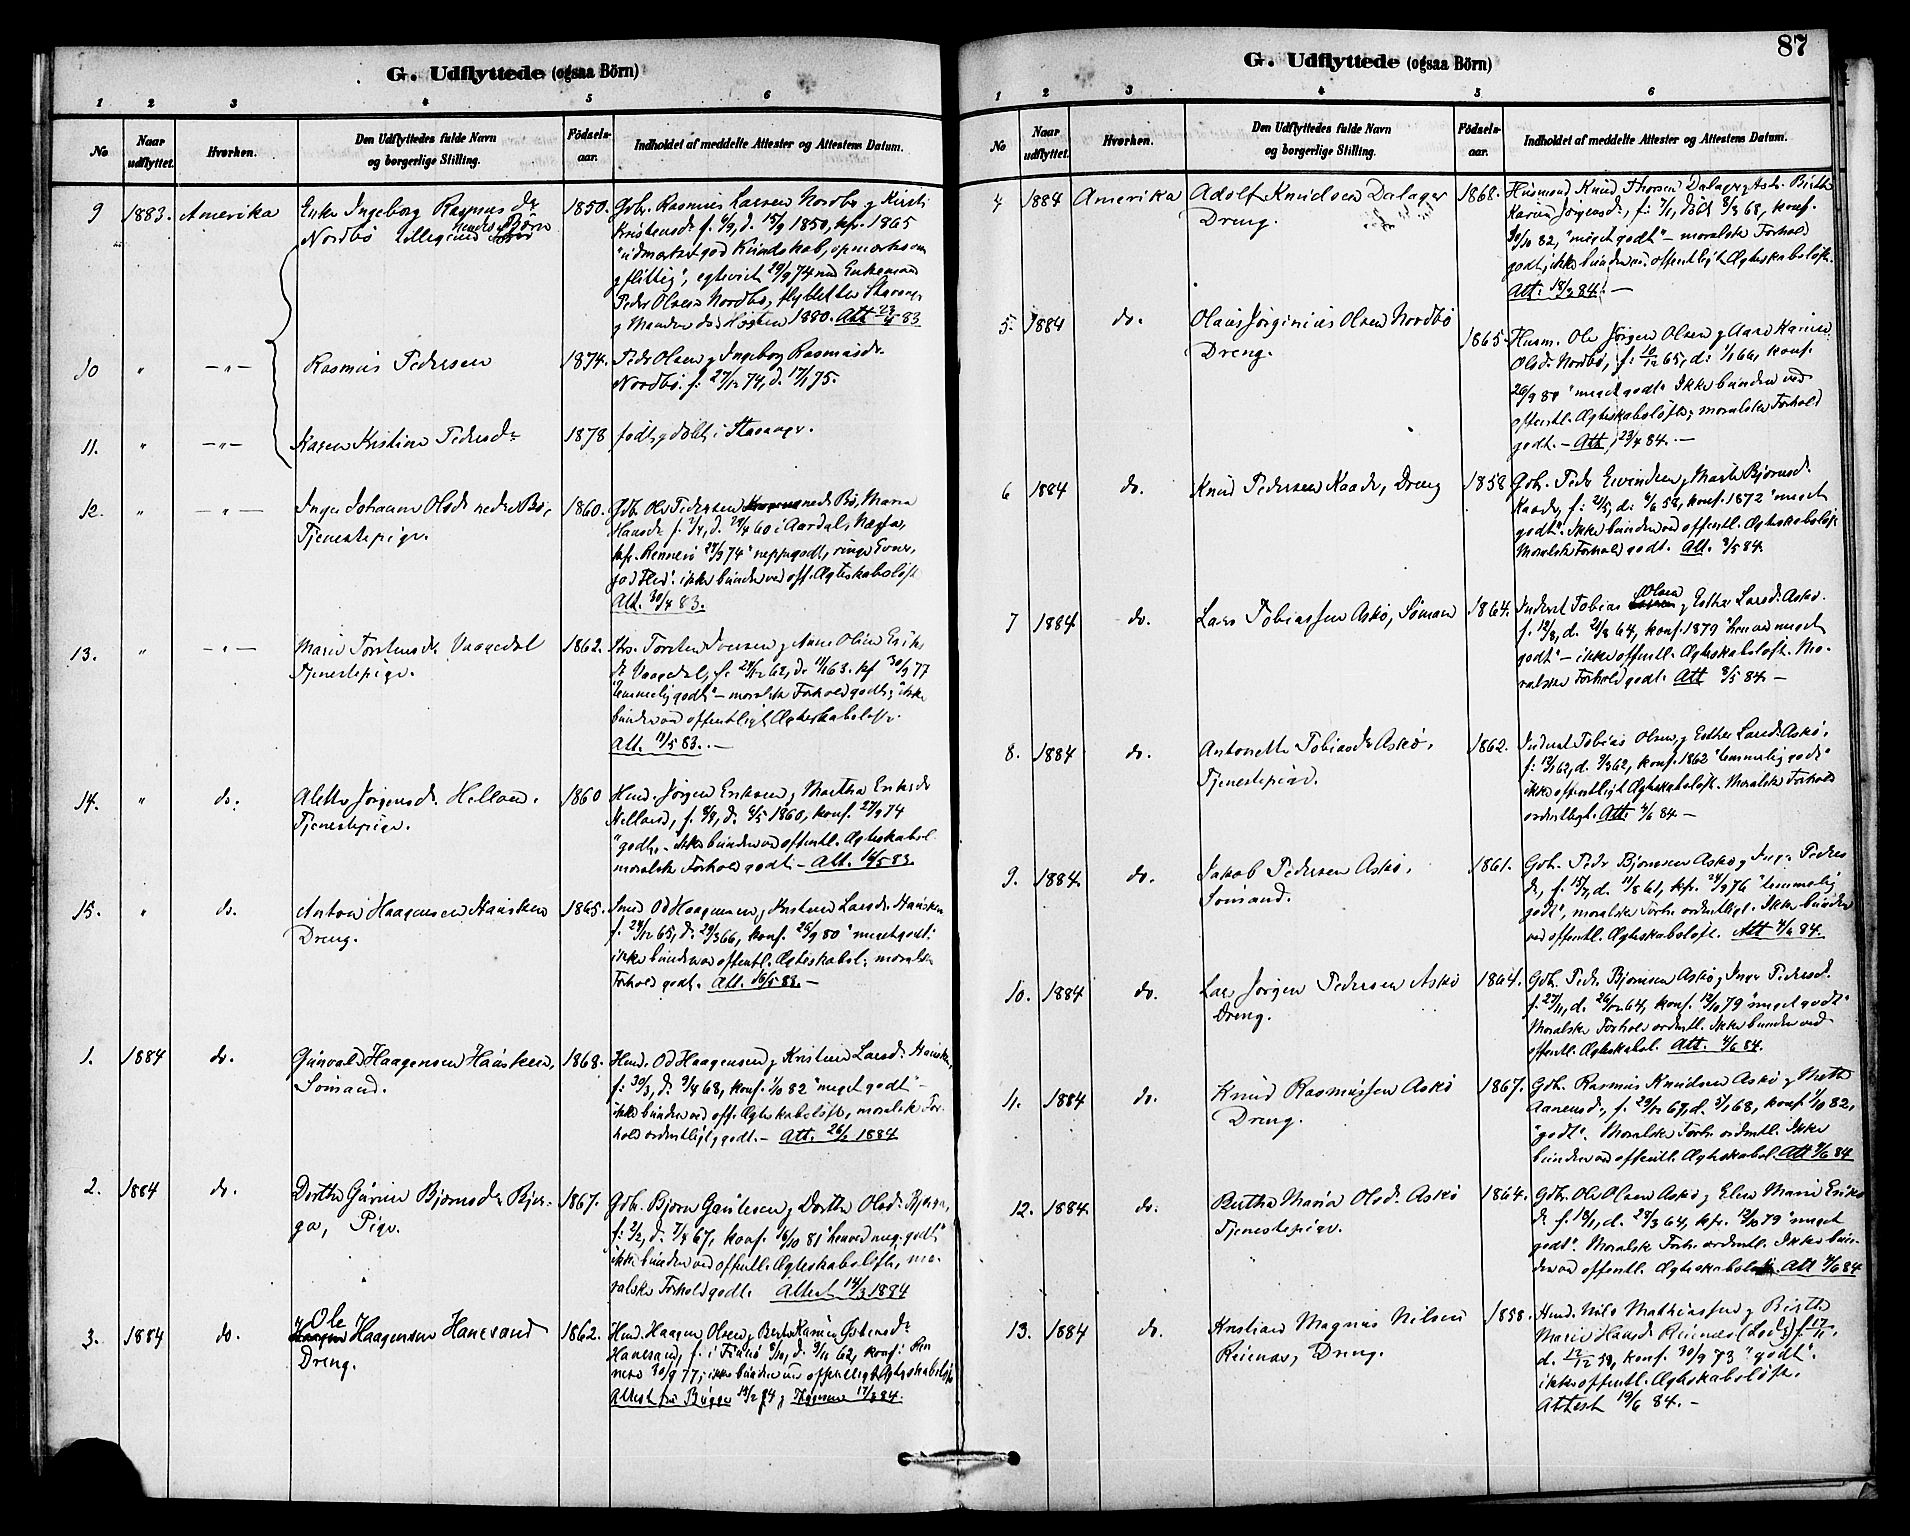 G. Udflyttede (ogsaa Börn)
1 2 3 4 5 6
No
Naar udflyttet.
Hvorhen.
Den Udflyttedes fulde Navn
og borgerlige Stilling.
Födsels-
aar.
Indholdet af meddelte Attester og Attestens Datum.
9 1883. Amerika Enke Ingeborg Rasmusdr
Nordbö tilligemed hendes Börn
1850. Gbr. Rasmus Larsen Nordbö
"udmærket god Kundskab, opmærksom
g flittig", egteviet 29/9 74 med Enkemand
Peder Olsen Nordbö, flyttet til Stavanger
10 " —"— Rasmus Pedersen 1874. Peder Olsen g Ingeborg Rasmusdr.
Nordbö. f: 27/12 74, d. 17/1 75.
11. " —"— Karen Kristine Pedersdr 1878 födt g döbt i Stavanger.
12. " —"— Inger Johanne Olsdr nedre Bö,
Tjenestepige.
1860. Gbr. Ole Pedersen nedre Bö, Maria
Hansdr
god Flid". ikke bunden ved off. Ægteskabslöfte
Att. 30/4 83.
13. " —"— Marie Torstensdr. Vaagedal
Tjenestepige.
1862. Torsten Iversen g Anne Oline Eriks-
dr. Vaagedal,
"temmelig godt" — moralsk Forhold godt, ikke
bunden ved offentligt Ægteskabslöfte.
Att. 11/5 83. —
14. " do. Alette Jörgensdr. Helland.
Tjenestepige.
1860 Husmd. Jörgen Eriksen g Martha Eriksdr
Helland, f. 8/4, d. 6/5 1860, konf. 27/9 74
"godt". — ikke bunden ved offentl. Ægteskabsl.
moralsk Forhold godt — Att. 14/5 83.
15. " do. Anton Haagensen Hausken
Dreng.
1865. Haagensen g Kristine Larsdr. Hausken
f. 24/12 65, d. 29/3 66, konf. 26/9 80 "meget godt".
ikke bunden ved offentl. Ægteskabsl. moralsk
Forhold godt. Att. 16/5 83. —
1. 1884 do. Gunvald Haagensen Hausken,
Sömand.
1868. Husmd. Haagensen g Kristine Larsdr. Hausken,
f: 30/3, d. 9/4 68, konf. 1/10 82 "meget godt" —
ikke bunden ved off. Ægteskabslöfte, moralsk For-
hold ordentligt, godt. — Att. 26/2 1884
2. 1884 do. Dorthe Gurine Björnsdr Bjer-
ga, Pige.
1867. Gbr. Björn Gautesen g Dorthe Olsdr. Bjerga,
f: 2/2, d. 7/4 67, konf. 16/10 81 "henved meg. godt"
ikke bunden ved offentl. Ægteskabslöfte, mo-
ralsk Forhold godt. Attest 14/3 1884
3. 1884 do. Ole
Haagensen Hanesand
Dreng.
1862. Husmd. Haagen Olsen g Berte Karine Östensdr
Hanesand,
ikke bunden ved offentligt Ægteskabslöfte
87
G. Udflyttede (ogsaa Börn)
1 2 3 4 5 6
No
Naar udflyttet.
Hvorhen.
Den Udflyttedes fulde Navn
og borgerlige Stilling.
Födsels-
aar.
Indholdet af meddelte Attester og Attestens Datum.
4 1884 Amerika Adolf Knudsen Dalager
Dreng.
1868. Husmand Knud Thorsen Dalager g Birthe
Karine Jörgensdr.,
30/10 82, "meget godt" — moralsk Forhold
godt, ikke bunden v. offentligt Ægteskabslöfte.
Att. 18/3 84. —
5. 1884 do. Olaus Jörginius Olsen Nordbö
Dreng.
1865. Husm. Ole Jörgen Olsen g Karine
Olsdr. Nordbö, f: 10/12 65, d: 1/1 66, konf.
26/9 80 "meget godt" Ikke bunden ved
offentl. Ægteskabslöfte, moralsk Forhold
godt. — Att. 23/4 84. —
6 1884 do. Knud Pedersen Kaade, Dreng
1858 Gbr. Peder Eivindsen g Marte Björnsdr.
Kaade, f: 21/5, d: 6/6 58, konf. 1872 "meget
godt". Ikke bunden ved offentl. Ægteskabslöfte
Moralsk Forhold godt. Att. 3/5 84.
7 1884 do. Lars Tobiassen Askö, Sömand
1864. Inderst Tobias Olsen g Esther Larsdr. Askö.
f. 12/8, d. 21/8 64, konf. 1879 "henved meget
godt" — ikke offentl. Ægteskabslöft. Mo-
ralsk Forhold godt. Att 8/5 84. —
8. 1884 do. Antonette Tobiasdr Askö,
Tjenestepige.
1862. Inderst Tobias Olsen, g Esther Larsdr Askö,
konf. 1862 "temmelig godt"
ikke offentligt Ægteskabslöft. Moralsk Forhold
ordentligt. Att. 4/6 84 —
9. 1884 do. Jakob Pedersen Askö,
Sömand.
1861. Gbr. Peder Björnsen Askö g Inger Peders-
dr, f. 15/7, d. 11/8 61, kfr. 24/9 76 "temmelig
godt", moralsk Forh. ordentligt. Ikke bunden
ved offentl. Ægteskabslöft. Att 4/6 84.
10. 1884 do. Lars Jörgen Pedersen Askö
Dreng.
1864. Gbr. Peder Björnsen Askö g Inger Pedersdr.
f. 27/11, d. 26/12 64, konf. 12/10 79 "meget godt"
Moralsk Forhold ordentl. Ikke bunden ved
offentl. Ægteskabsl. Att. 4/6 84.
11. 1884 do. Knud Rasmussen Askö
Dreng.
1867. Gbr. Rasmus Knudsen Askö g Mette
Aanensdr., f. 29/12 67, d. 5/1 68, konf. 1/10 82,
"godt". Moralsk Forh. ordentl. Ikke
bunden ved offentl. Ægteskabsl. Att 4/6 84
12. 1884 do. Berthe Maria Olsdr. Askö
Tjenestepige.
1864. Gbr. Ole Olsen Askö g Elen Marie Eriks-
dr. f. 18/1, d. 28/3 64, kfr. 12/10 79 "meget
godt". Moralsk Forh. ordentl. Ikke bun-
den ved offentl. Ægteskabslöft. Att 4/6 84
13. 1884 do. Kristian Magnus Nilsen
Reienæs, Dreng.
1858. Husmd. Nils Mathiassen g Birthe
Marie Hansdr Reienæs
d. 12/12 58, konf. 30/9 73 "godt".
ikke offentl. Ægteskabslöfte.
Attest 19/6 84. —